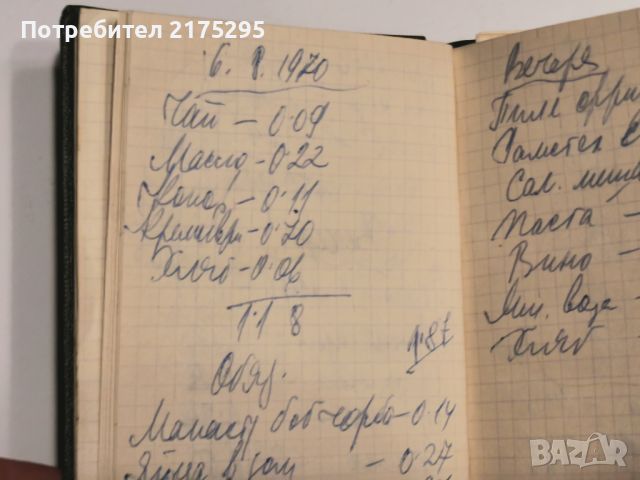 Потребител 2175295
6. 8. 1970
Чай – 0.09
Масло – 0.22
– 0.11
– 0.70
Хляб – 0.06
1.18
1.87
Обяд.
Манаст. боб чорба – 0.14
Яйца – 0.27
Вечеря
Пиле
Ромстек
Сал.
Паста –
Вино –
Мин. вода –
Хляб –
BAZAR